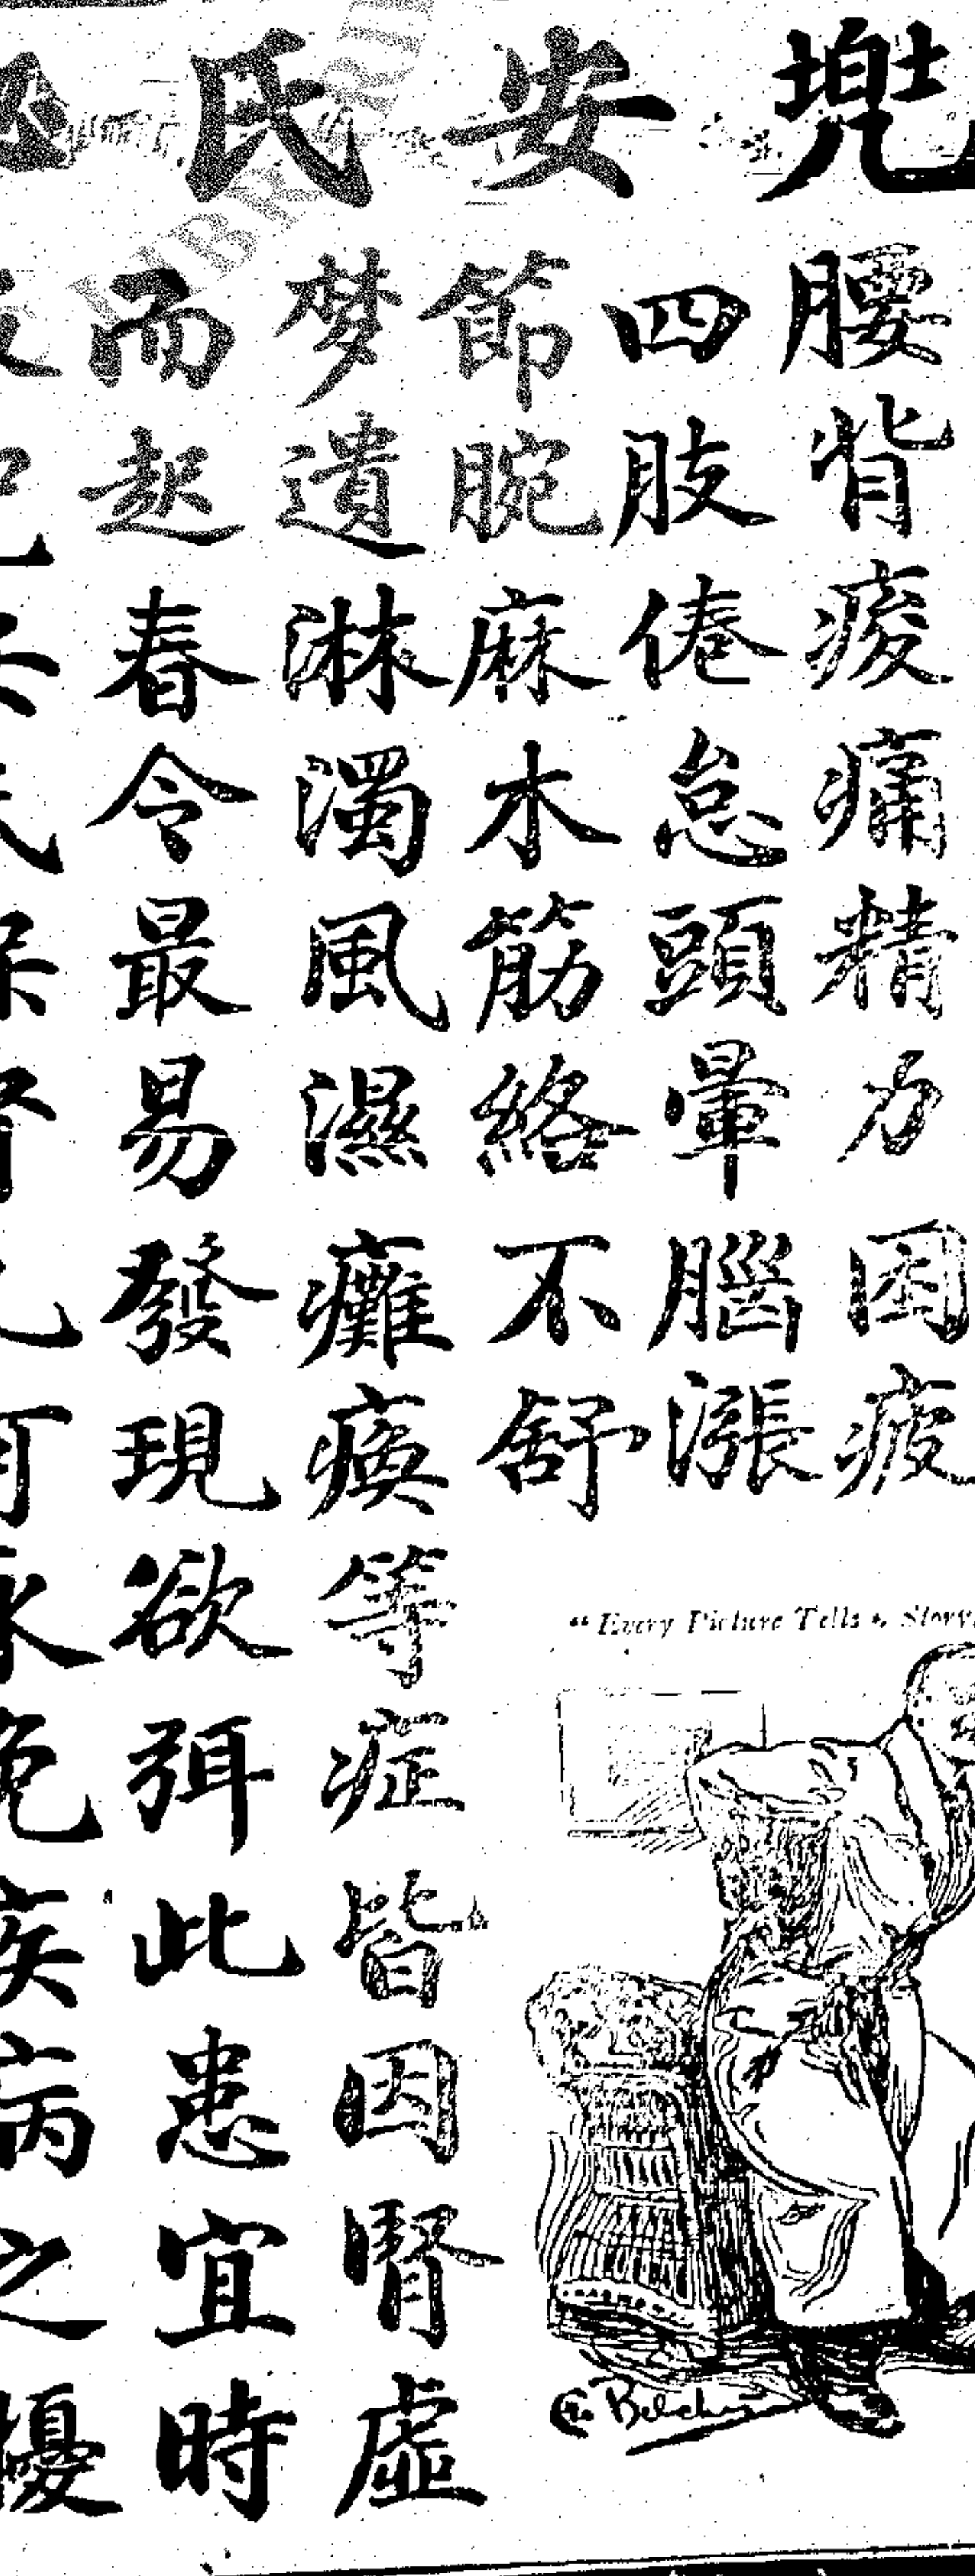 兜安氏
腰背痠痛精力困疲
四肢倦怠頭暈腦漲
節腕麻木筋絡不舒
梦遺淋濁風濕癱瘓等症皆因腎虛
而起春令最易發現欲弭此患宜時
"Every Picture Tells a Story